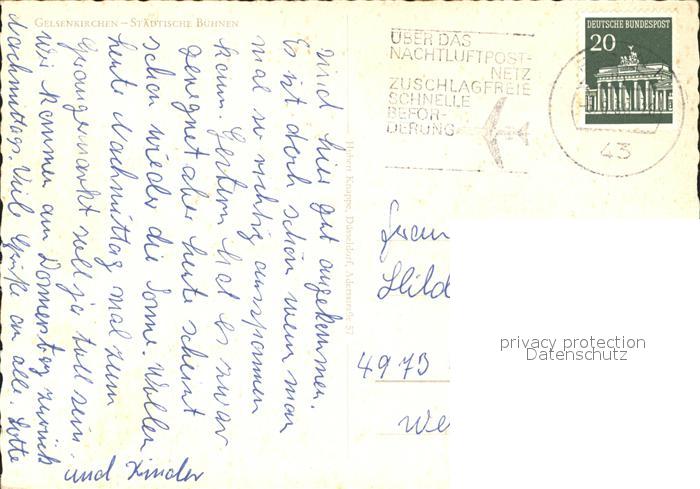 GELSENKIRCHEN – STÄDTISCHE BÜHNEN
sind hier gut angekommen.
Es ist doch schön wenn man
mal so richtig ausspannen
kann. Gestern hat es zwar
geregnet aber heute scheint
schon wieder die Sonne. Wollen
heute Nachmittag mal zum
markt soll ja toll sein.
Wir kommen am Donnerstag zurück
Nachmittag. Viele Grüße an alle Lotte
und Kinder
Hubert Knappe, Düsseldorf, Adersstraße 57
ÜBER DAS
NACHTLUFTPOST-
NETZ
ZUSCHLAGFREIE
SCHNELLE
BEFÖR-
DERUNG
DEUTSCHE BUNDESPOST
20
43
Frau
Hild
4973
We
privacy protection
Datenschutz